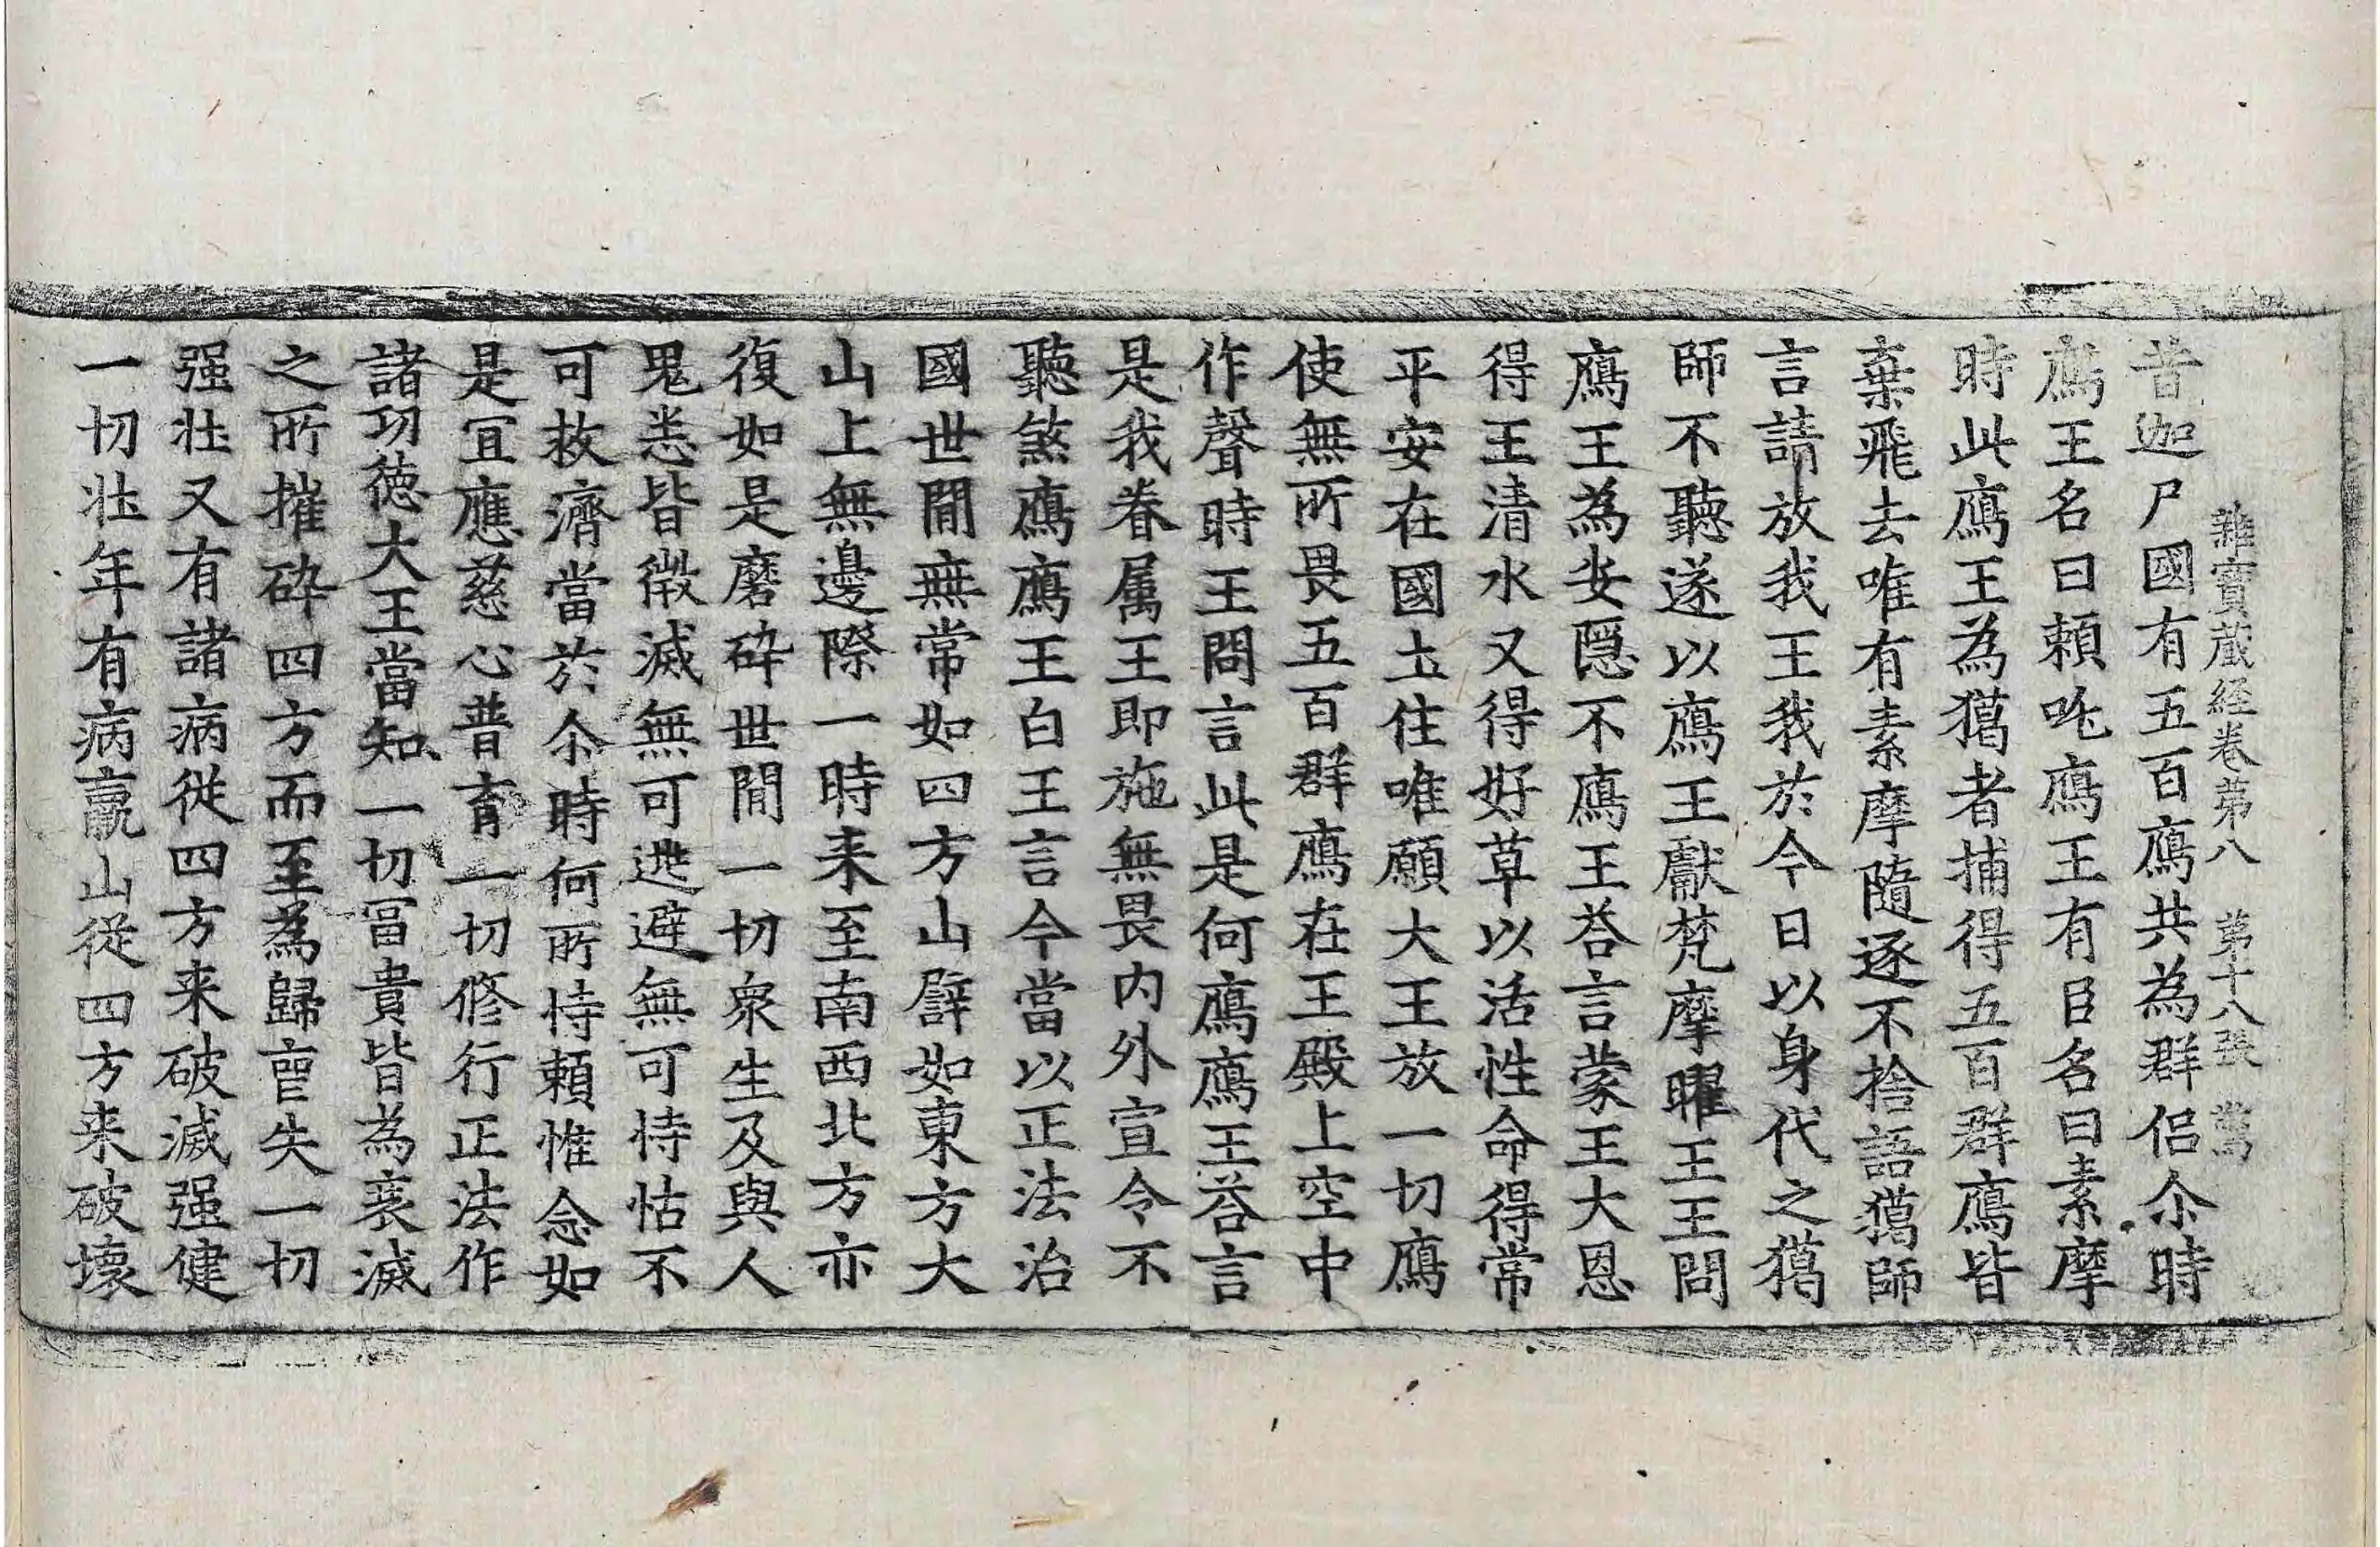 雜寶蔵経卷苐八 苐十八張 驚
昔迦尸國有五百鴈共為群侣尒時
鴈王名曰頼吒鴈王有臣名曰素摩
時此鴈王為獦者捕得五百群鴈皆
棄飛去唯有素摩隨逐不捨語獦師
言請放我王我於今日以身代之獦
師不聽遂以鴈王獻梵摩曜王王問
鴈王為安隠不鴈王荅言蒙王大恩
得王清水又得好草以活性命得常
平安在國土住唯願大王放一切鴈
使無所畏五百群鴈在王殿上空中
作聲時王問言此是何鴈鴈王荅言
是我眷属王即施無畏内外宣令不
聽煞鴈鴈王白王言今當以正法治
國世間無常如四方山譬如東方大
山上無邊際一時来至南西北方亦
復如是磨碎世間一切衆生及與人
鬼悉皆微滅無可逃避無可恃怙不
可救濟當於尒時何所恃頼惟念如
是宜應慈心普育一切修行正法作
諸功徳大王當知一切冨貴皆為衰滅
之所摧碎四方而至為歸喪失一切
强壮又有諸病従四方来破滅强健
一切壮年有病羸山従四方来破壞